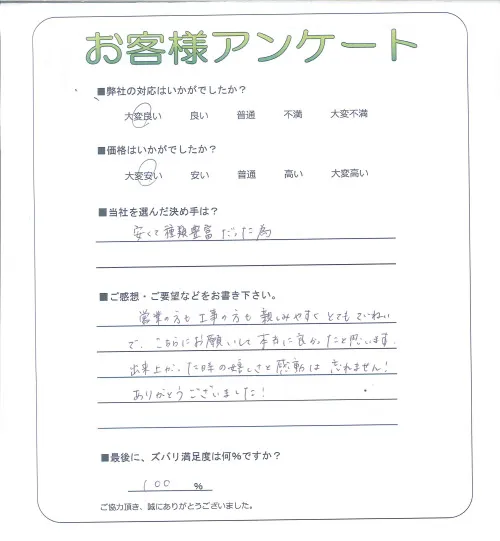 お客様アンケート
■弊社の対応はいかがでしたか？
大変良い 良い 普通 不満 大変不満
■価格はいかがでしたか？
大変安い 安い 普通 高い 大変高い
■当社を選んだ決め手は？
安くて種類豊富だった為
■ご感想・ご要望などをお書き下さい。
営業の方も工事の方も親しみやすくとてもていねい
で、こちらにお願いして本当に良かったと思います。
出来上がった時の嬉しさと感動は忘れません！
ありがとうございました！
■最後に、ズバリ満足度は何％ですか？
100 ％
ご協力頂き、誠にありがとうございました。